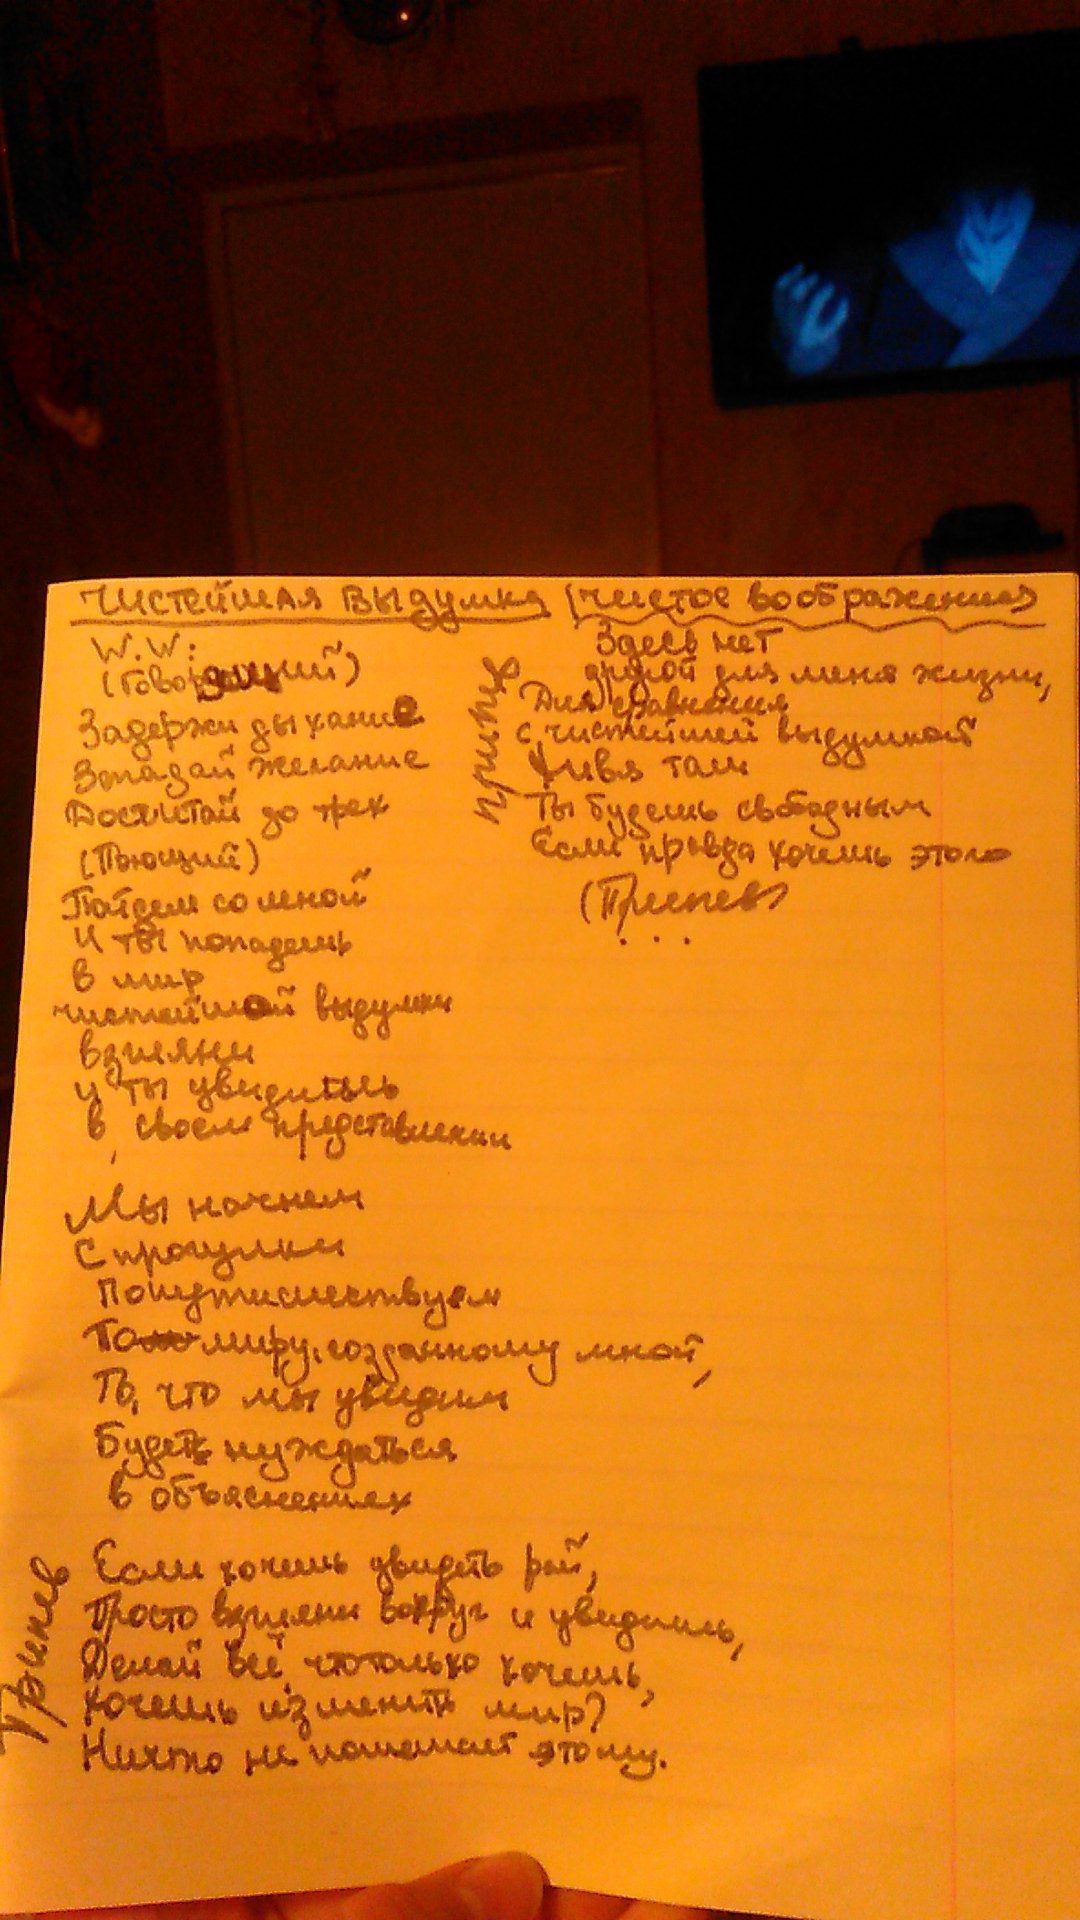 ЧИСТЕЙШАЯ ВЫДУМКА (чистое воображение)
W.W:
(Говорящий)
Задержи дыхание
Загадай желание
Досчитай до трех
(Поющий)
Пойдем со мной
И ты попадешь
в мир
чистейшей выдумки
взгляни
и ты увидишь
в своем представлении
Мы начнем
С прогулки
Попутешествуем
По миру, созданному мной,
То, что мы увидим
Будет нуждаться
в объяснениях
Припев
Если хочешь увидеть рай,
Просто взгляни вокруг и увидишь,
Делай всё, что только хочешь,
Хочешь изменить мир?
Ничто не помешает этому.
Припев
Здесь нет
другой для меня жизни,
Для сравнения
с чистейшей выдумкой
Живя там
Ты будешь свободным
Если правда хочешь этого
(Припев)
...